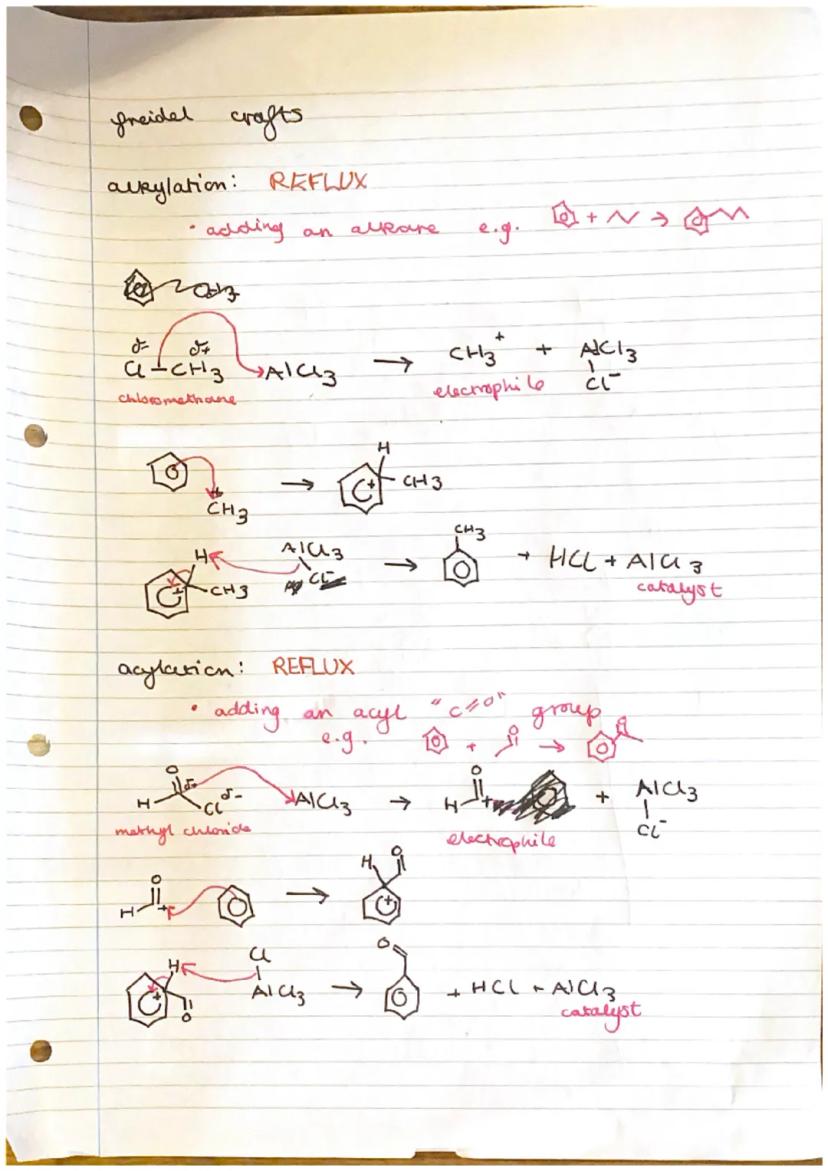 freidel crafts
alkylation: REFLUX
• adding an alkane e.g. + →
CH3
δ- δ+
Cl - CH3 AlCl3 → CH3+ + AlCl3
chloromethane electrophile Cl-
H
→ C+ CH3
+CH3
CH3
H AlCl3 → + HCl + AlCl3
C+ CH3 Cl- catalyst
acylation: REFLUX
• adding an acyl "C=O" group
e.g. + O → O
O δ+ O
H Cl δ- AlCl3 → H + + AlCl3
methyl chloride electrophile Cl-
O H O
H + → +
Cl O
H AlCl3 → + HCl + AlCl3
C+ O catalyst